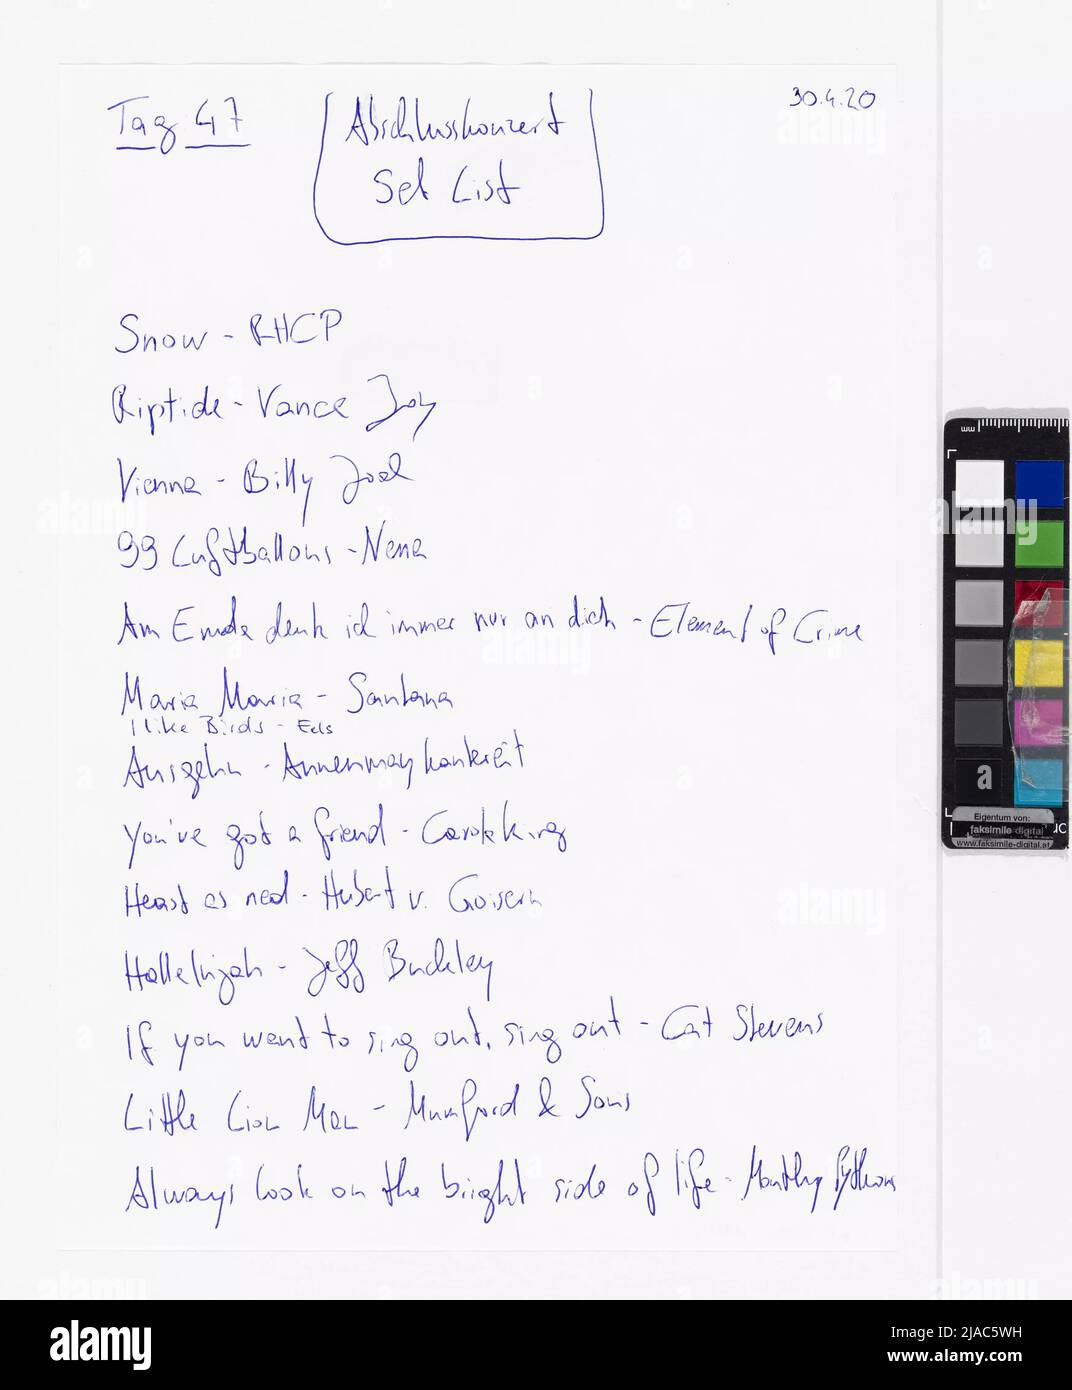 Tag 47
Abschlusskonzert
Set List
30.4.20
Snow - RHCP
Riptide - Vance Joy
Vienna - Billy Joel
99 Luftballons - Nena
Am Ende denk ich immer nur an dich - Element of Crime
Maria Maria - Santana
I like Birds - Eels
Ausgehn - Annenmaykantereit
You've got a friend - Carole King
Heast as ned - Hubert v. Goisern
Hallelujah - Jeff Buckley
If you want to sing out, sing out - Cat Stevens
Little Lion Man - Mumford & Sons
Always look on the bright side of life - Monthy Pythons
mm
Eigentum von:
faksimile digital
www.faksimile-digital.at
alamy
alamy
alamy
alamy
alamy
alamy
Image ID: 2JAC5WH
www.alamy.com